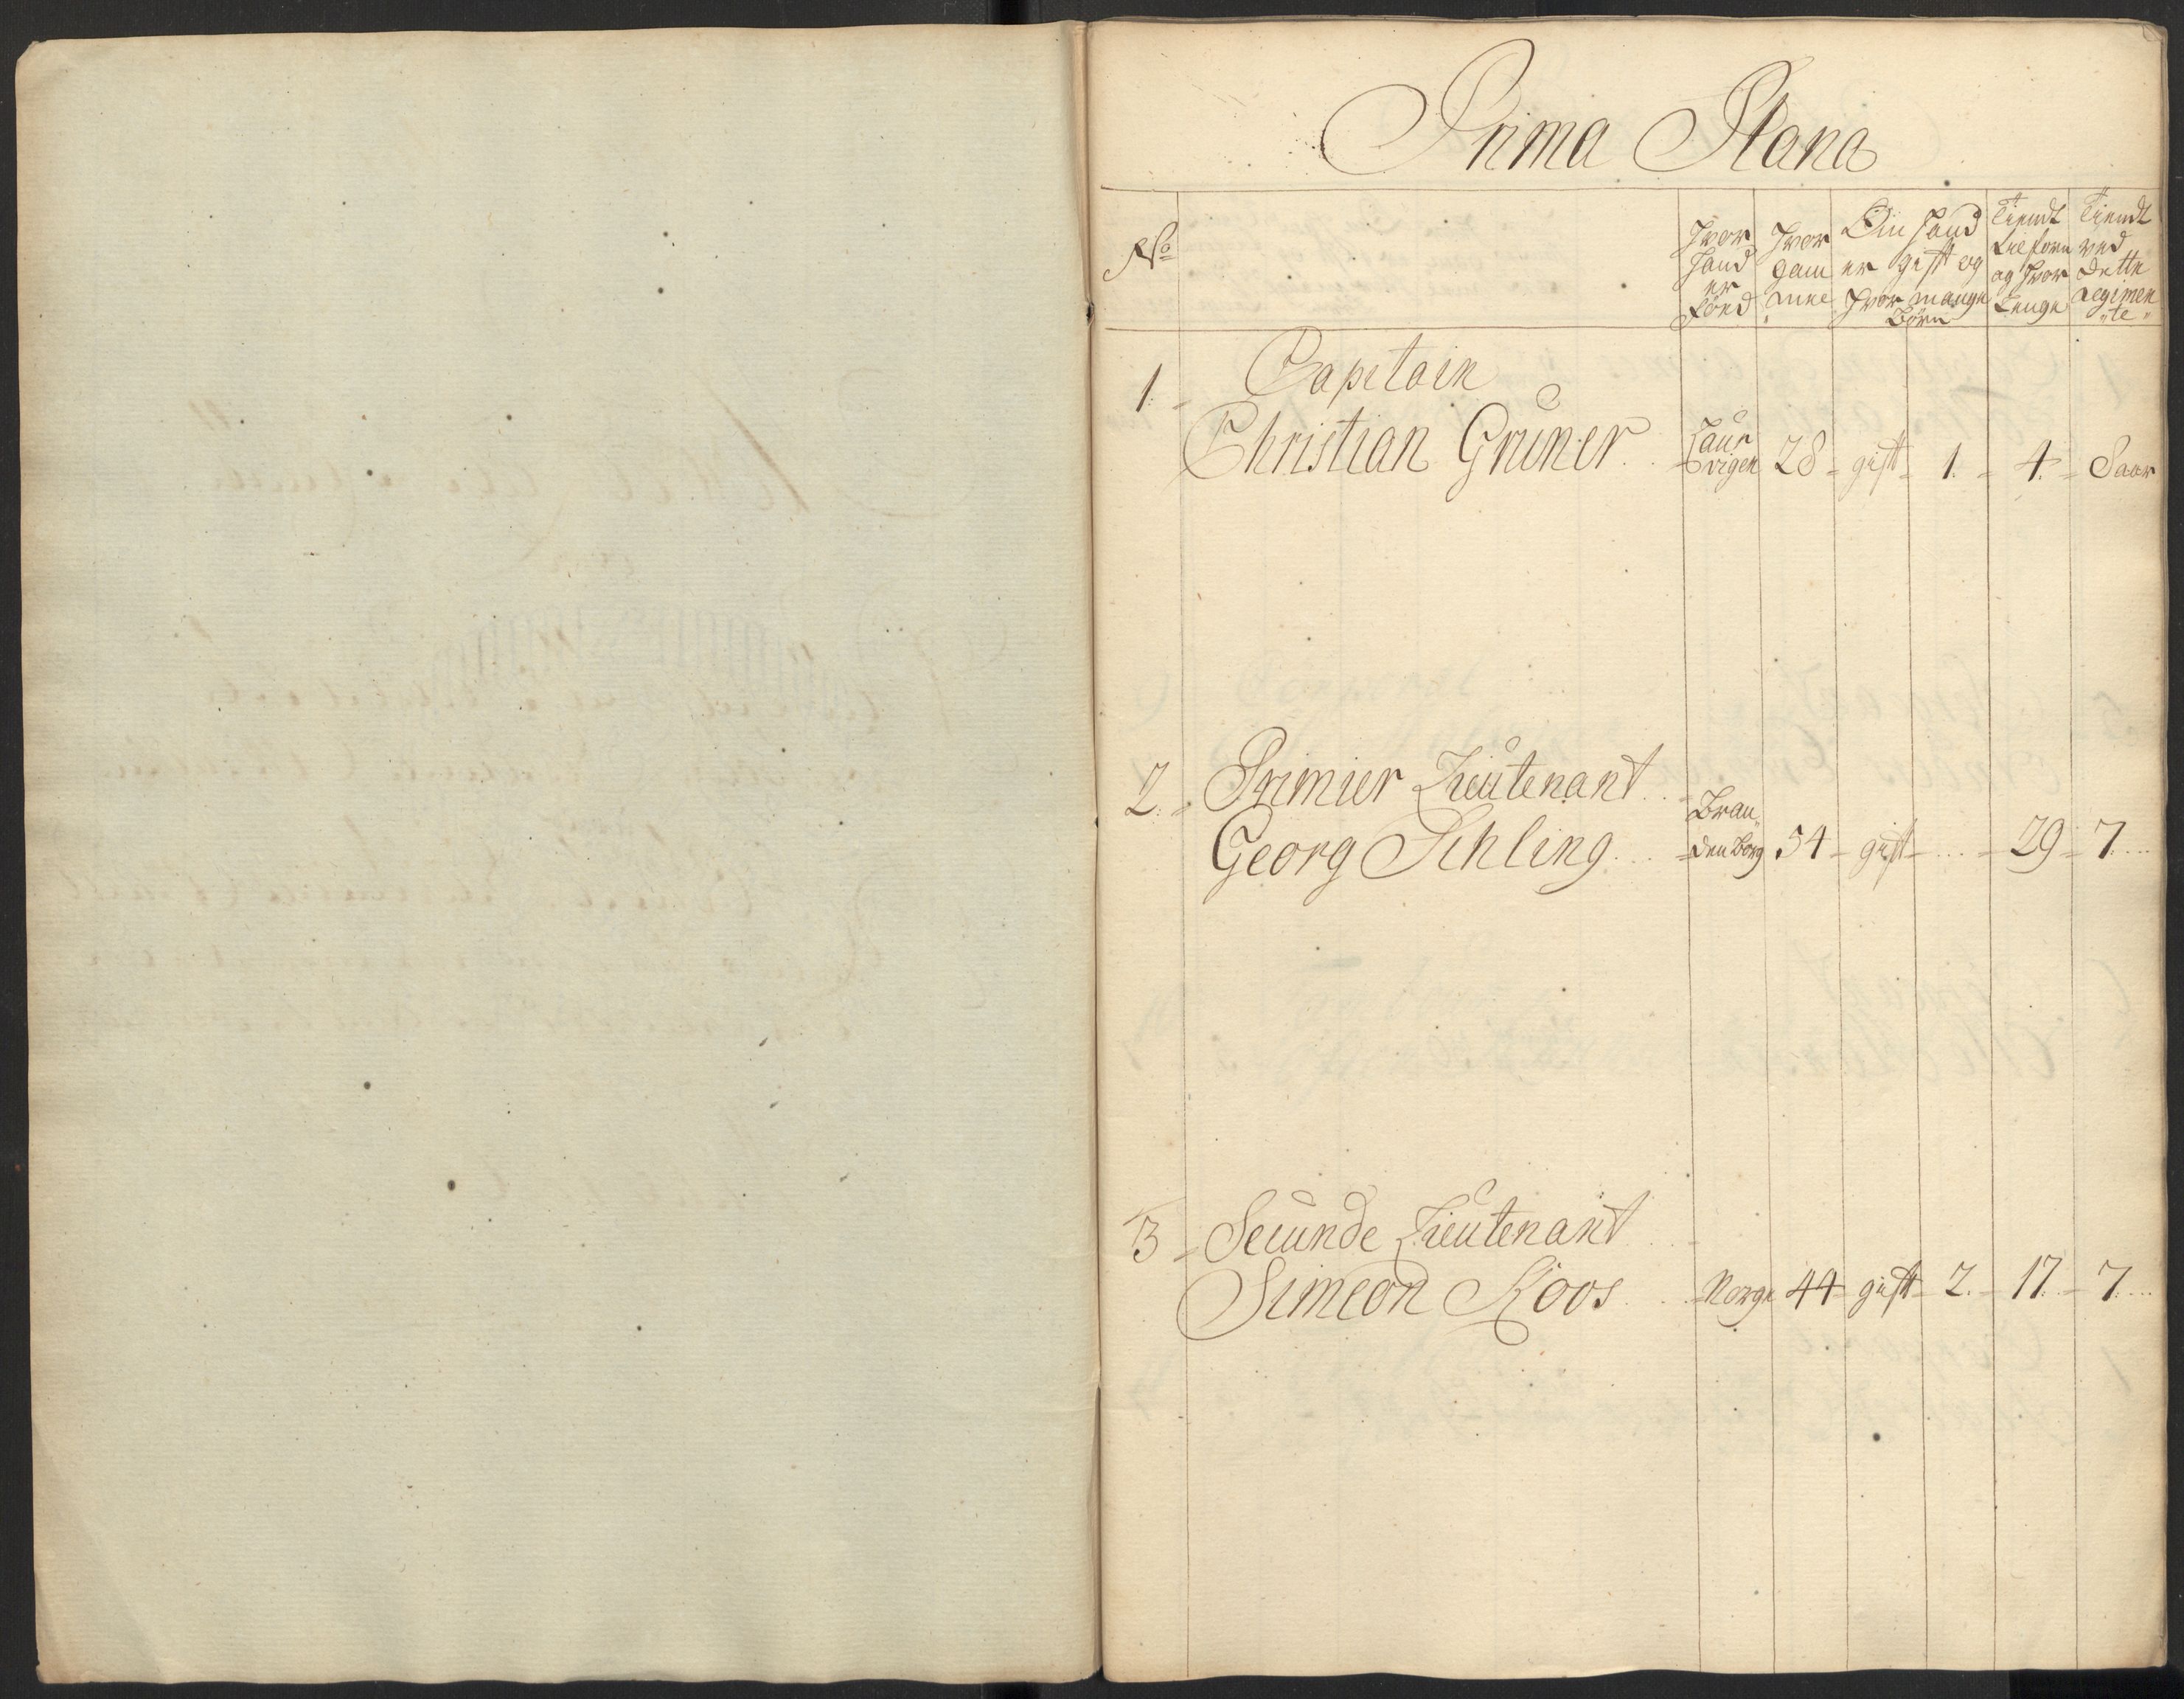 Prima Plana
No
Hvor
Hand
er
Föed
Hvor
gam
mel
Om Hand
er gift og
Hvor mange
Börn
Tiendt
og Hvor
Lenge
Tiendt
ved
Dette
Regimen
"te"
1. Capitain
Christian Grüner Laur
vigen 28 gift 1. 4. Jaar
2. Primier Lieutenant
Georg Schling Bran„
denborg 54 gift 29 7
3 Secunde Lieutenant
Simeon Koos Norge 44 gift 2. 17 7